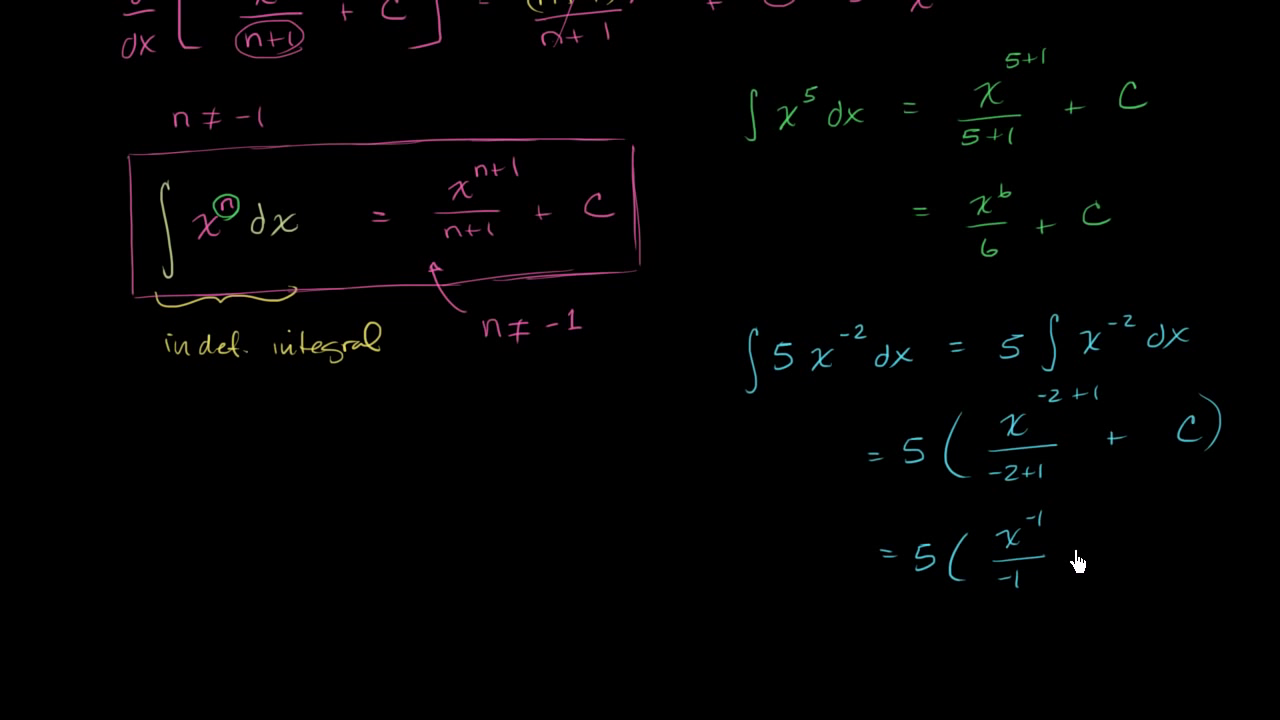 d/dx [ x/(n+1) + C ] = (n+1)/(n+1) + x
n ≠ -1
∫ xⁿ dx = xⁿ⁺¹/(n+1) + C
n ≠ -1
indef. integral
∫ x⁵ dx = x⁵⁺¹/(5+1) + C
= x⁶/6 + C
∫ 5 x⁻² dx = 5 ∫ x⁻² dx
= 5 ( x⁻²⁺¹/(-2+1) + C )
= 5 ( x⁻¹/-1